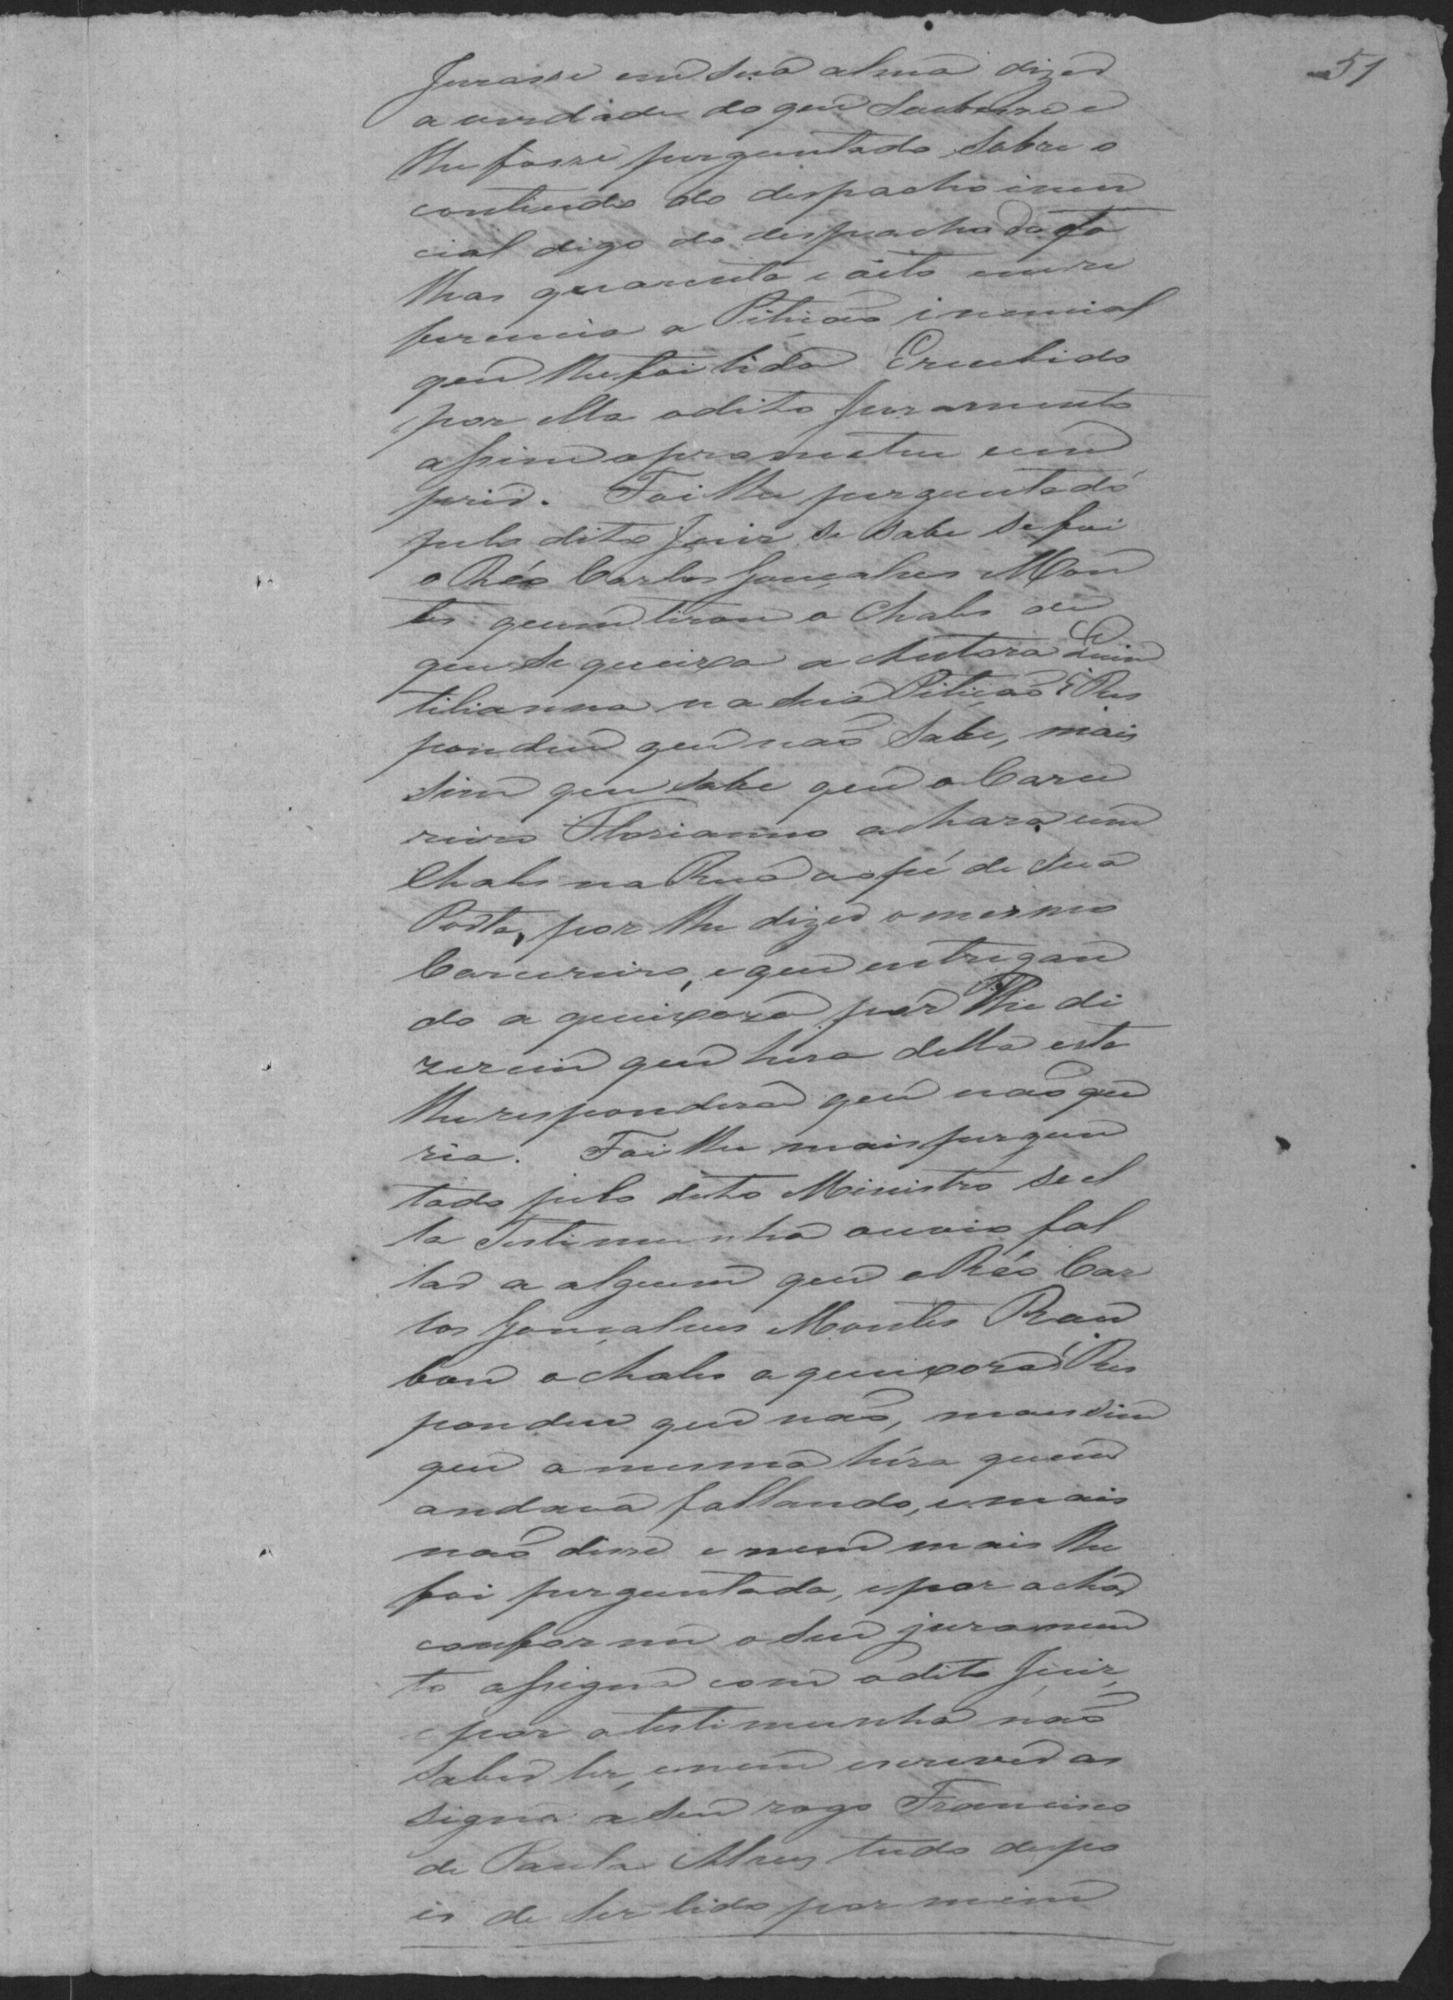 51
Jurasse em sua alma dizer
a verdade do que Soubesse e
lhe fosse perguntado Sobre o
contiudo do despacho inen
cial digo do despacho da fo
lhas quarenta e oito em re
ferencia a Pitição inencial
que lhe foi lida E recebido
por ella o dito Juramento
assim o prometeu cum
prir. Foi lhe perguntado
pelo dito Juiz se sabe se foi
o Réo Carlos Gonçalves Mon
tes quem tirou o Chales de
que se queixa a Autora Quin
tilianna na sua Pitição? Res
pondeu que não Sabe, mais
sim que sabe que o Carce
reiro Florianno achara um
Chales na Rua ao pé de sua
Porta, por lhe dizer o mesmo
Carcereiro, e que entregan
do a queixoza por lhe di
zerem que hera della esta
lhe respondera que não que
ria. Foi lhe mais pergun
tado pelo dito Ministro se el
la Testimunha ouvio fal
lar a alguem que o Réo Car
los Gonçalves Montes Rou
bou o chales a queixoza? Res
pondeu que não, mais sim
que a mesma héra quem
andava fallando, e mais
não disse e nem mais lhe
foi perguntado, e por achar
conforme o seu juramen
to assigna com o dito Juiz,
e por a testimunha não
saber ler, e nem escrever as
signa a seu rogo Francisco
de Paula Alves tudo depo
is de ser lido por mim